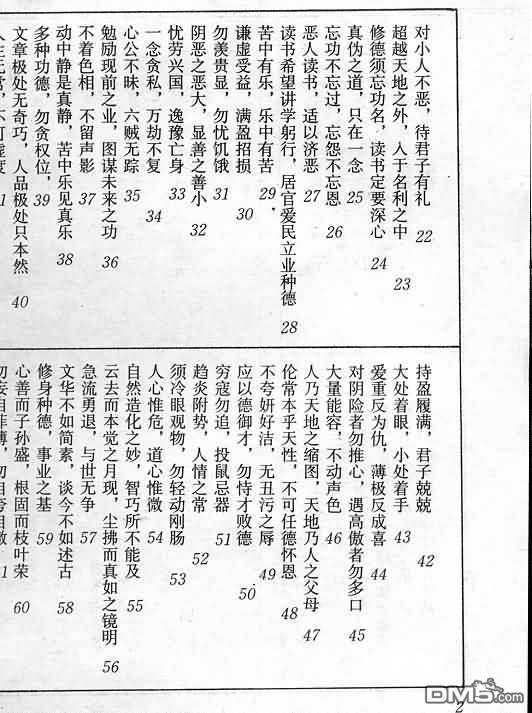 对小人不恶，待君子有礼 22
超越天地之外，入于名利之中 23
修德须忘功名，读书定要深心 24
真伪之道，只在一念 25
忘功不忘过，忘怨不忘恩 26
恶人读书，适以济恶 27
读书希望讲学躬行，居官爱民立业种德 28
苦中有乐，乐中有苦 29
谦虚受益，满盈招损 30
勿羡贵显，勿忧饥饿 31
阴恶之恶大，显善之善小 32
忧劳兴国，逸豫亡身 33
一念贪私，万劫不复 34
心公不昧，六贼无踪 35
勉励现前之业，图谋未来之功 36
不着色相，不留声影 37
动中静是真静，苦中乐见真乐 38
多种功德，勿贪权位， 39
文章极处无奇巧，人品极处只本然 40
持盈履满，君子兢兢 42
大处着眼，小处着手 43
爱重反为仇，薄极反成喜 44
对阴险者勿推心，遇高傲者勿多口 45
大量能容，不动声色 46
人乃天地之缩图，天地乃人之父母 47
伦常本乎天性，不可任德怀恩 48
不夸妍好洁，无丑污之辱 49
应以德御才，勿恃才败德 50
穷寇勿追，投鼠忌器 51
趋炎附势，人情之常 52
须冷眼观物，勿轻动刚肠 53
人心惟危，道心惟微 54
自然造化之妙，智巧所不能及 55
云去而本觉之月现，尘拂而真如之镜明 56
急流勇退，与世无争 57
文华不如简素，谈今不如述古 58
修身种德，事业之基 59
心善而子孙盛，根固而枝叶荣 60
2
DM5.com